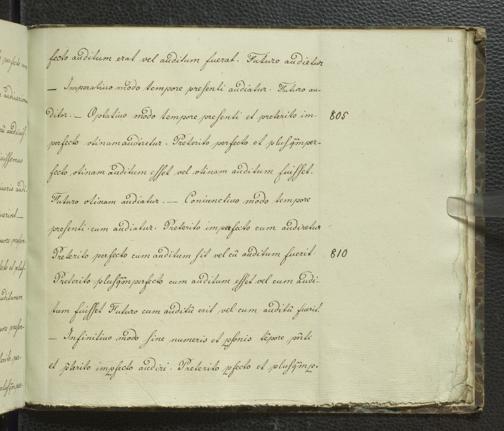 fecto auditum erat vel auditum fuerat. Futuro audietur
— Imperatiuo modo tempore presenti audiatur. Futuro au-
ditor. — Optatiuo modo tempore presenti et preterito im- 805
perfecto utinam audiretur. Preterito perfecto et plusq̃mper-
fecto utinam auditum esset vel utinam auditum fuisset.
Futuro utinam audiatur. — Coniunctiuo modo tempore
presenti cum audiatur. Preterito imperfecto cum audiretur
Preterito perfecto cum auditum sit vel cũ auditum fuerit 810
Preterito plusq̃mperfecto cum auditum esset vel cum audi-
tum fuisset Futuro cum auditũ erit vel cum auditũ fuerit.
— Infinitiuo modo sine numeris et p̱sonis tẽpore p̃nte
et p̃terito imp̱fecto audiri. Preterito p̱fecto et plusq̃mp̱-